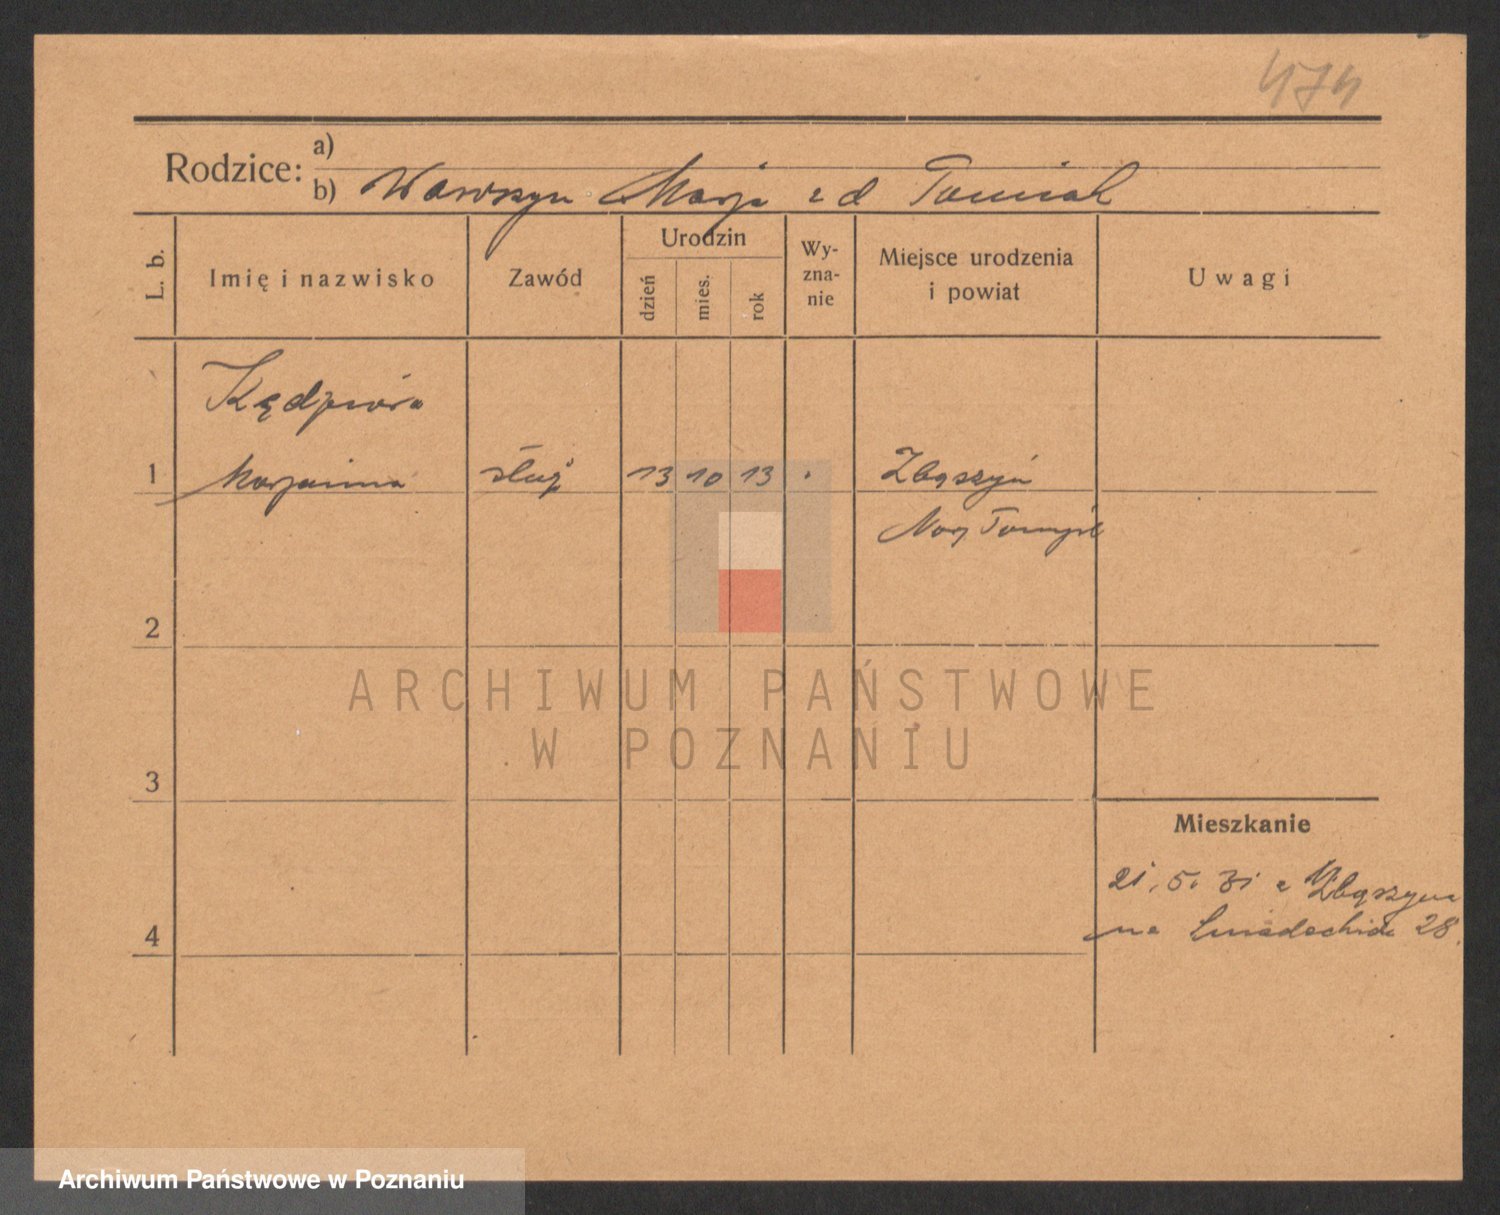 474
Rodzice: a)
b) Wawrzyn Marja z d Tomiak
L. b.
Imię i nazwisko
Zawód
Urodzin
dzień
mies.
rok
Wy-
zna-
nie
Miejsce urodzenia
i powiat
Uwagi
Kędziora
1 Marjanna służ 13 10 13 Zbąszyń
Nowy Tomyśl
2
ARCHIWUM PAŃSTWOWE
W POZNANIU
3
Mieszkanie
21.5.31 z Zbąszynia
na 28.
4
Archiwum Państwowe w Poznaniu